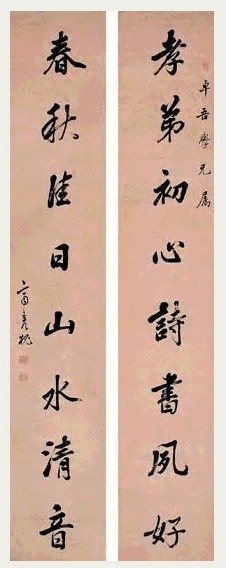 卓吾學兄屬
孝弟初心詩書夙好
春秋佳日山水清音